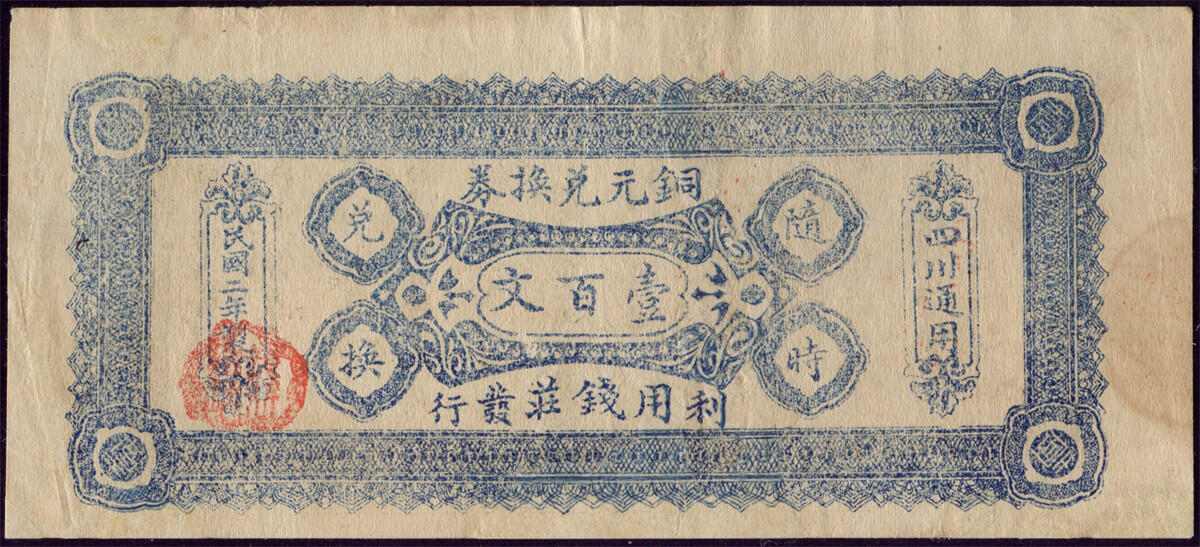 銅元兑換券
四川通用
隨時
兑換
壹百文
利用錢莊發行
民國二年